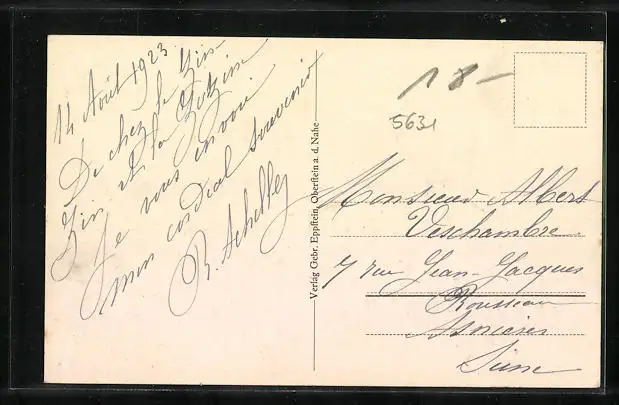 14 Août 1923
De chez le Zin
Zin et la Zulzine
Je vous envoie
mon cordial souvenir
R. Achilley
Verlag Gebr. Eppstein, Oberstein a. d. Nahe
18-
5631
Monsieur Albert
Veschambre
7 rue Jean-Jacques
Rousseau
Asnières
Seine